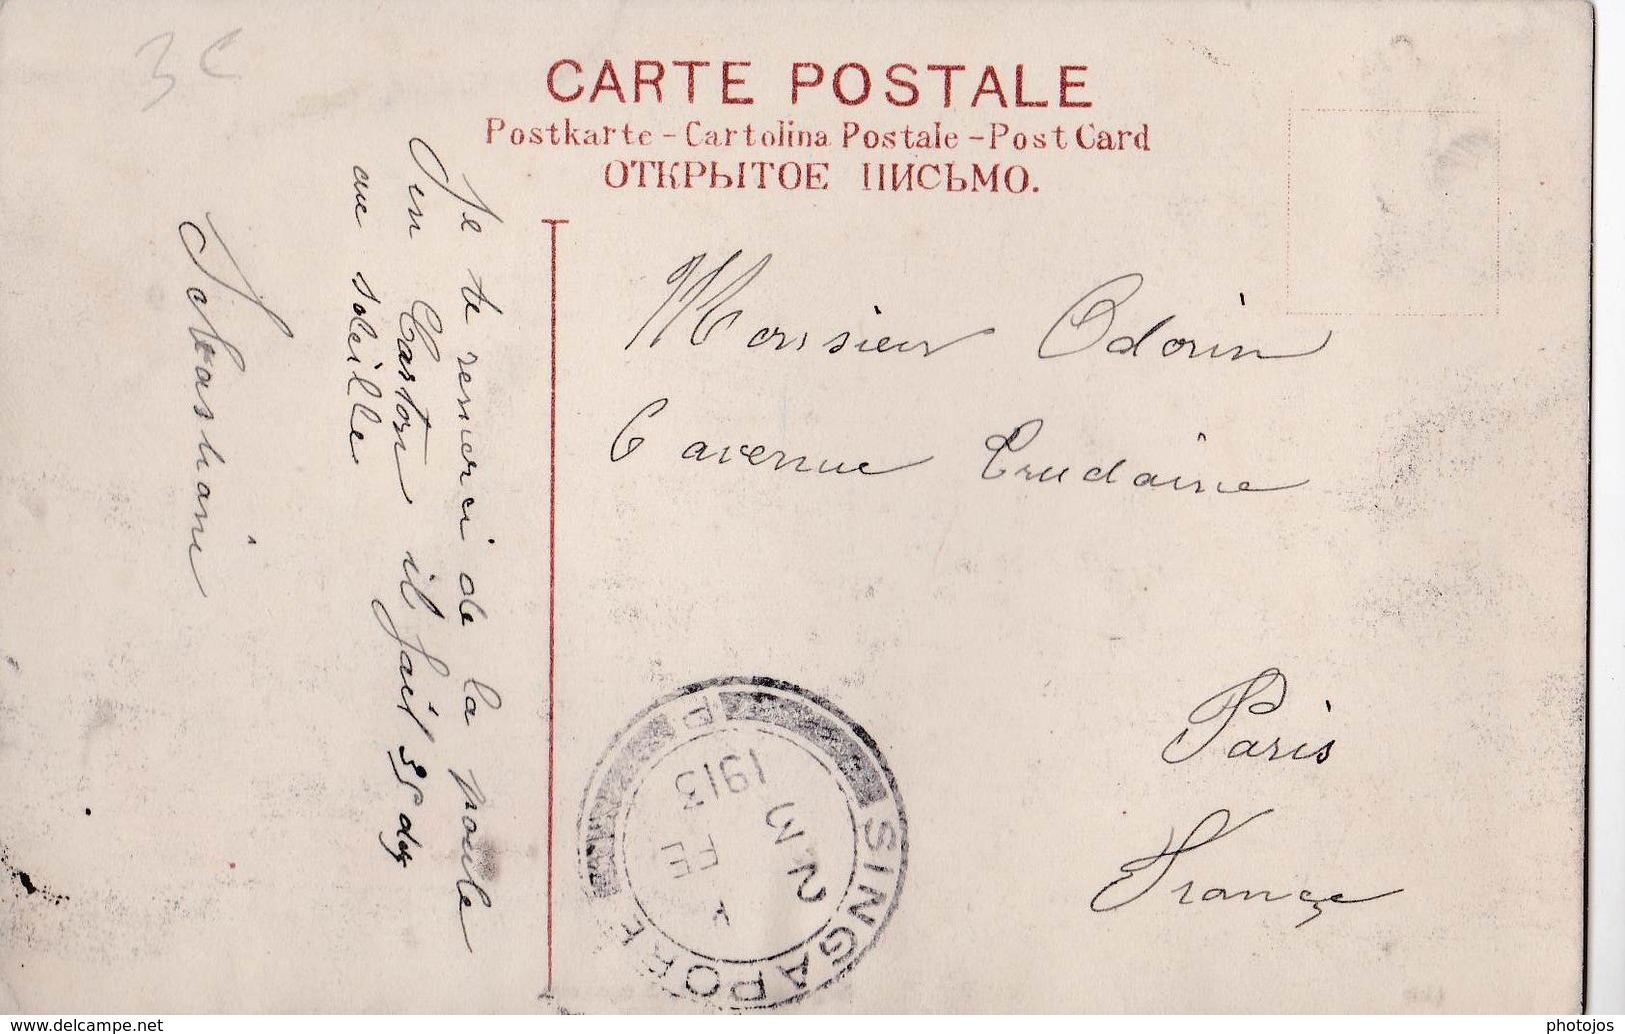 3 c
CARTE POSTALE
Postkarte - Cartolina Postale - Post Card
ОТКРЫТОЕ ПИСЬМО.
Je te remerci de la poule
un Carton il fait 35 deg
au soleille
Monsieur Odorin
6 avenue Trudaine
Paris
France
SINGAPORE P
2 M
FE
1913
www.delcampe.net
photojos